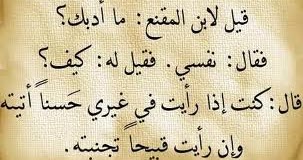 قيل لابن المقنع: ما أدبك؟
فقال: نفسي. فقيل له: كيف؟
قال: كنت إذا رأيت في غيري حَسناً أتيته
وإن رأيت قبيحاً تجنبته.